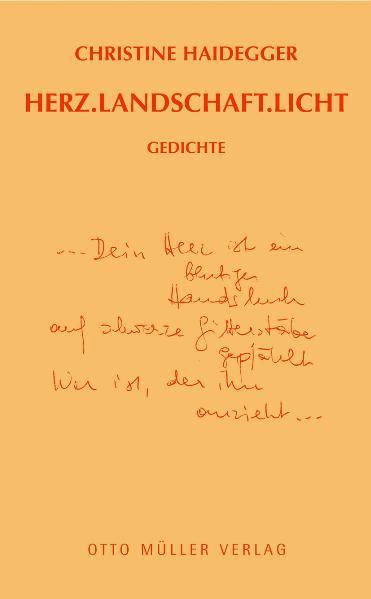 CHRISTINE HAIDEGGER
HERZ.LANDSCHAFT.LICHT
GEDICHTE
... Dein Herz ist ein
blutiger
Handschuh
auf schwarze Gitterstäbe
gepfählt
Wer ist, der ihn
anzieht ...
OTTO MÜLLER VERLAG